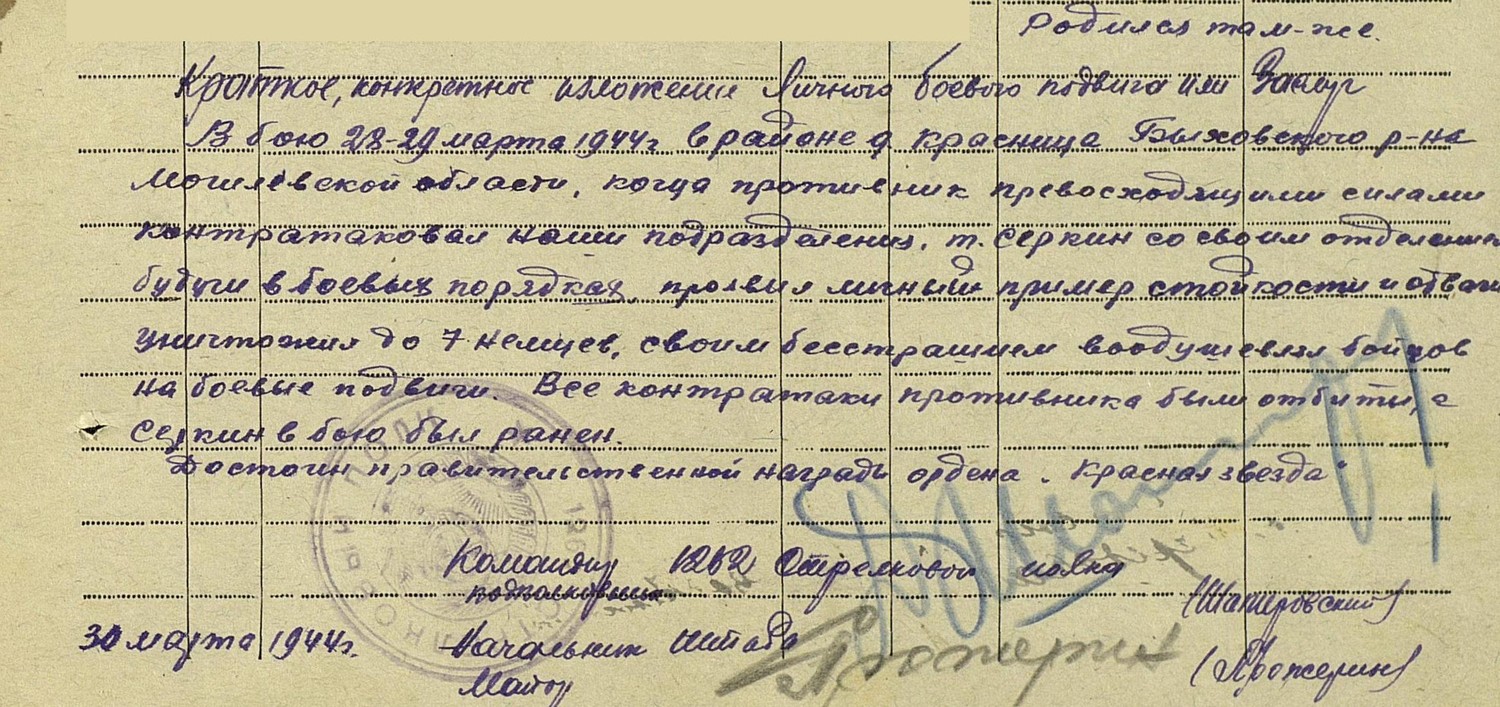 Родился там-же.
Краткое, конкретное изложение личного боевого подвига или Заслуг
В бою 28-29 марта 1944г в районе д. Красница Быховского р-на
Могилевской области, когда противник превосходящими силами
контратаковал наши подразделения, т. Серкин со своим отделением
будучи в боевых порядках, проявил личный пример стойкости и отваги
уничтожил до 7 немцев, своим бесстрашием воодушевлял бойцов
на боевые подвиги. Все контратаки противника были отбиты, а
Серкин в бою был ранен.
Достоин правительственной награды ордена „Красная звезда"
Командир 1262 Стрелковой полка
подполковник
30 марта 1944г. Начальник штаба
Майор